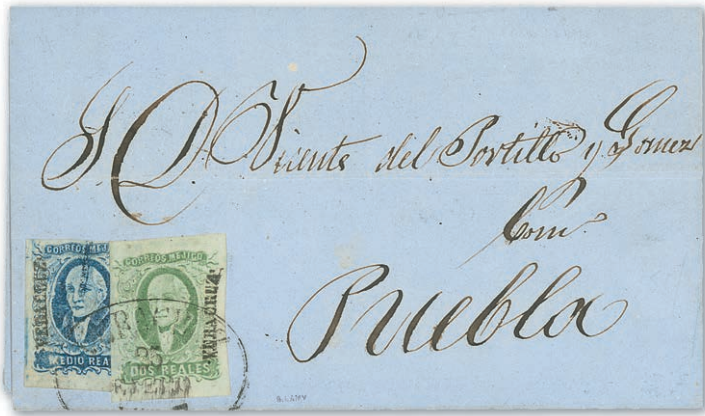 S. D. Vicente del Portillo y Gomez
Com.º
Puebla
CORREOS MEJICO
VERACRUZ
MEDIO REAL
CORREOS MEJICO
VERACRUZ
DOS REALES